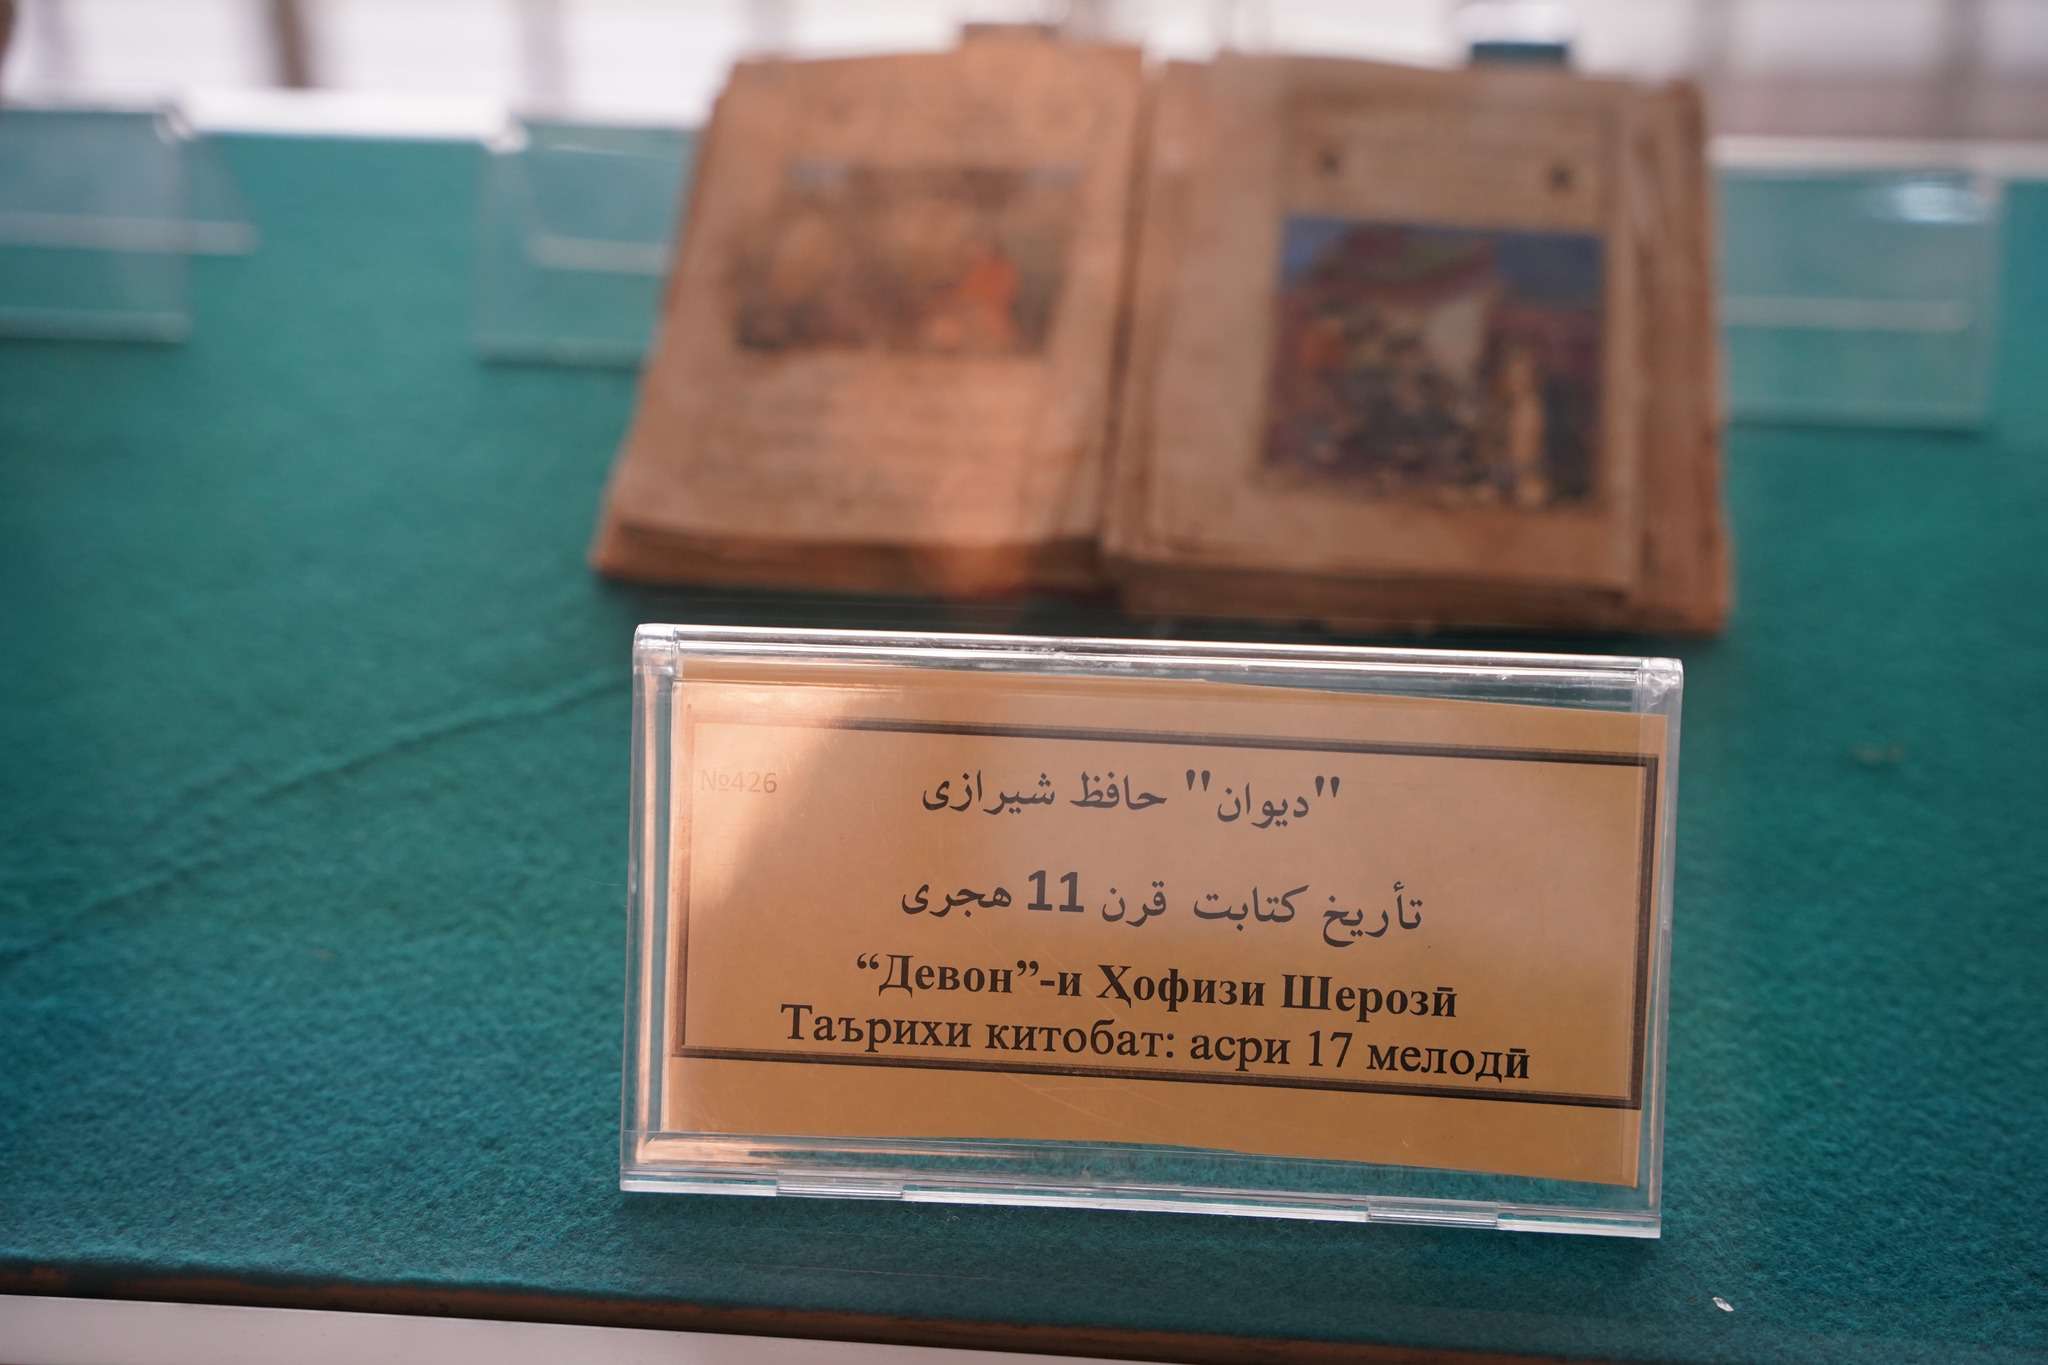 №426
"ديوان" حافظ شيرازی
تأريخ كتابت قرن 11 هجری
“Девон”-и Ҳофизи Шерозӣ
Таърихи китобат: асри 17 мелодӣ